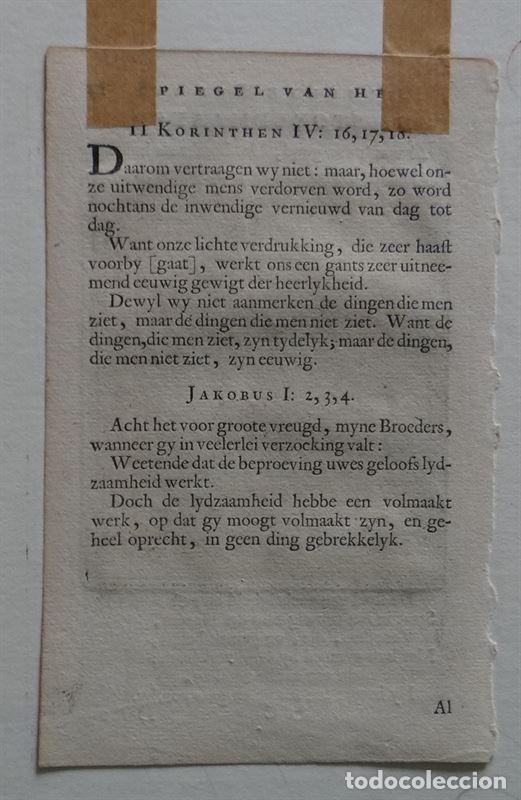 PIEGEL VAN HE
II KORINTHEN IV: 16, 17, 18.
Daarom vertraagen wy niet: maar, hoewel on-
ze uitwendige mens verdorven word, zo word
nochtans de inwendige vernieuwd van dag tot
dag.
Want onze lichte verdrukking, die zeer haast
voorby [gaat], werkt ons een gants zeer uitnee-
mend eeuwig gewigt der heerlykheid.
Dewyl wy niet aanmerken de dingen die men
ziet, maar de dingen die men niet ziet. Want de
dingen, die men ziet, zyn tydelyk; maar de dingen,
die men niet ziet, zyn eeuwig.
JAKOBUS I: 2, 3, 4.
Acht het voor groote vreugd, myne Broeders,
wanneer gy in veelerlei verzoeking valt:
Weetende dat de beproeving uwes geloofs lyd-
zaamheid werkt.
Doch de lydzaamheid hebbe een volmaakt
werk, op dat gy moogt volmaakt zyn, en ge-
heel oprecht, in geen ding gebrekkelyk.
Al
todocoleccion.net